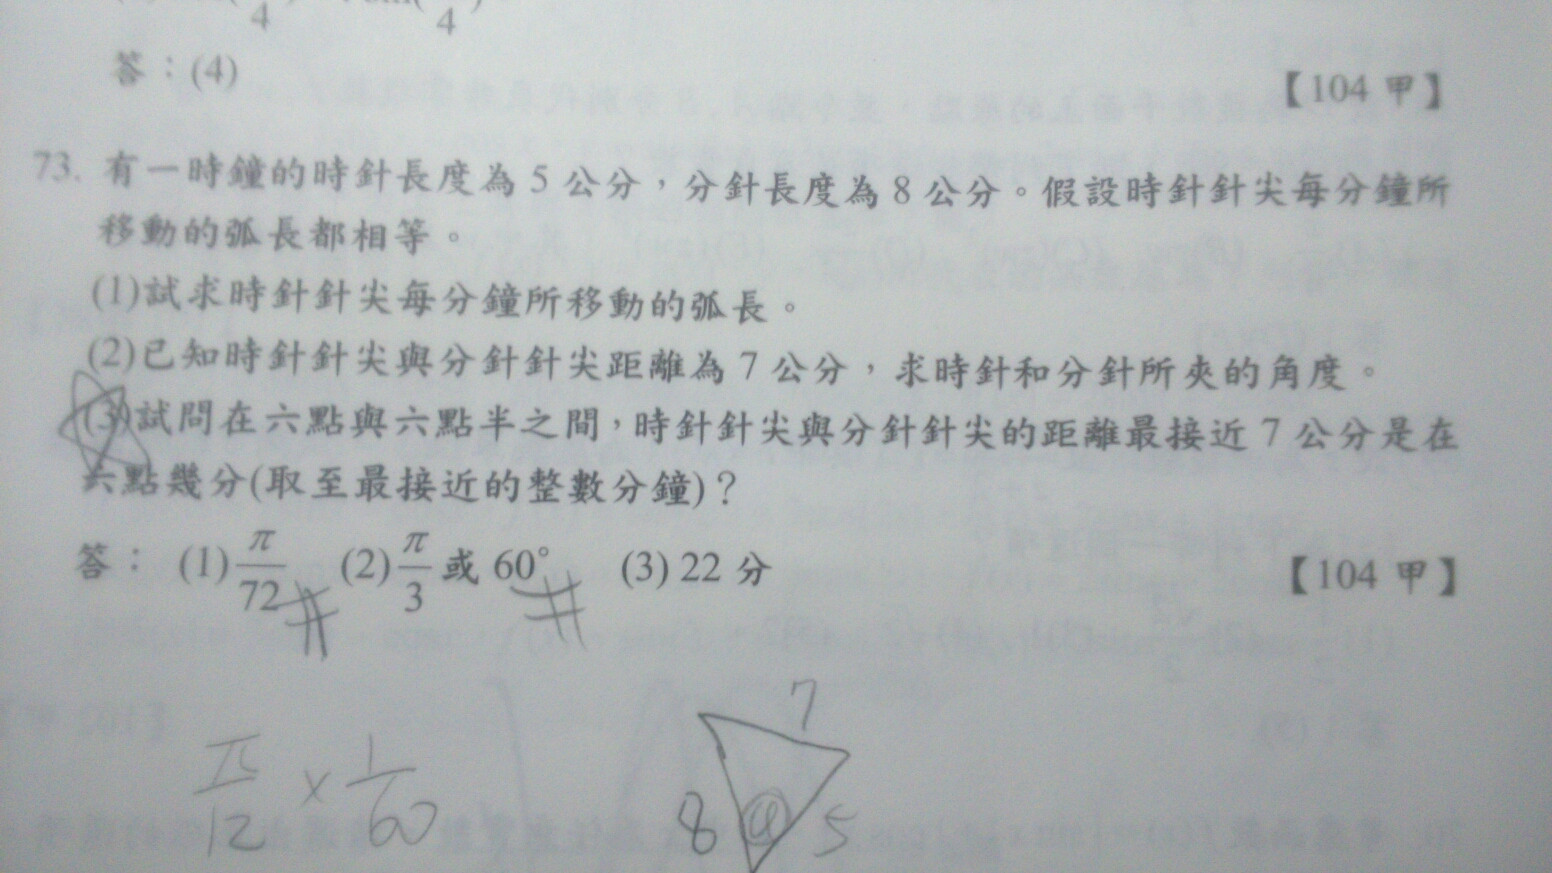 答：(4) 【104 甲】
73. 有一時鐘的時針長度為 5 公分，分針長度為 8 公分。假設時針針尖每分鐘所
移動的弧長都相等。
(1)試求時針針尖每分鐘所移動的弧長。
(2)已知時針針尖與分針針尖距離為 7 公分，求時針和分針所夾的角度。
(3)試問在六點與六點半之間，時針針尖與分針針尖的距離最接近 7 公分是在
六點幾分(取至最接近的整數分鐘)？
答： (1) π/72 (2) π/3 或 60° (3) 22 分 【104 甲】
7
π/12 × 1/60
8 θ 5